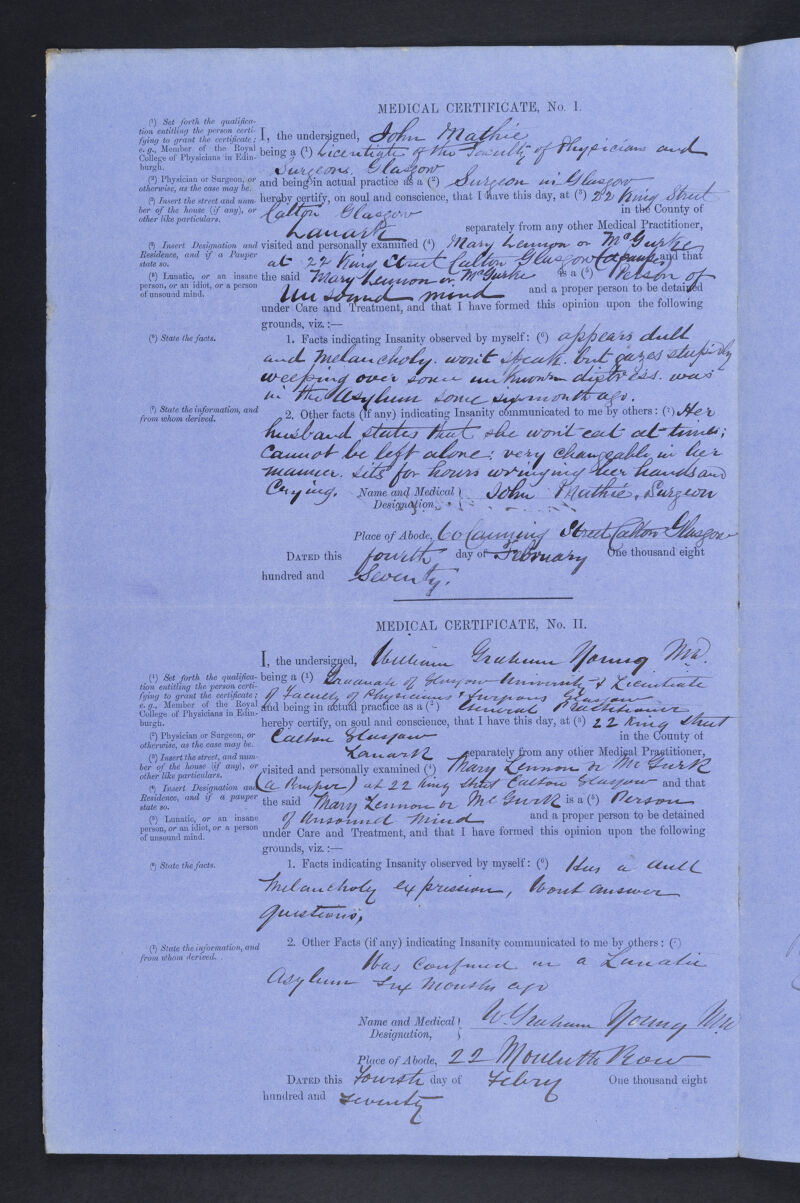 MEDICAL CERTIFICATE, No. I.
(1) Set forth the qualifica-
tion entitling the person certi-
fying to grant the certificate;
e.g., Member of the Royal
College of Physicians in Edin-
burgh.
(2) Physician or Surgeon, or
otherwise, as the case may be.
(3) Insert the street and num-
ber of the house (if any), or
other like particulars.
(4) Insert Designation and
Residence, and if a Pauper
state so.
(5) Lunatic, or an insane
person, or an idiot, or a person
of unsound mind.
(6) State the facts.
(7) State the information, and
from whom derived.
I, the undersigned, John Mathie
being a (1) Licentiate of the Faculty of Physicians and
Surgeons, Glasgow
and being in actual practice as a (2) Surgeon in Glasgow
hereby certify, on soul and conscience, that I have this day, at (3) 22 King Street
Calton Glasgow in the County of
Lanark separately from any other Medical Practitioner,
visited and personally examined (4) Mary Lennon or McGurke
at 22 King Street Calton Glasgow (a pauper) and that
the said Mary Lennon or McGurke is a (5) Person of
Unsound mind and a proper person to be detained
under Care and Treatment, and that I have formed this opinion upon the following
grounds, viz.:—
1. Facts indicating Insanity observed by myself: (6) appears dull
and melancholy. wont speak. but gazes stupidly
weeping over some unknown distress. was
in the Asylum some six month ago.
2. Other facts (if any) indicating Insanity communicated to me by others: (7) Her
husband states that she wont eat at times;
Cannot be left alone; very changeable in her
manner. sits for hours wringing her hands and
Crying.
Name and Medical Designation, John Mathie, Surgeon
Place of Abode, 60 Canning Street Calton Glasgow
DATED this fourth day of February One thousand eight
hundred and Seventy.
MEDICAL CERTIFICATE, No. II.
(1) Set forth the qualifica-
tion entitling the person certi-
fying to grant the certificate;
e.g., Member of the Royal
College of Physicians in Edin-
burgh.
(2) Physician or Surgeon, or
otherwise, as the case may be.
(3) Insert the street, and num-
ber of the house (if any), or
other like particulars.
(4) Insert Designation and
Residence, and if a pauper
state so.
(5) Lunatic, or an insane
person, or an idiot, or a person
of unsound mind.
(6) State the facts.
(7) State the information, and
from whom derived.
I, the undersigned, William Graham Young M.D.
being a (1) Graduate of Glasgow University & Licentiate
of Faculty of Physicians & Surgeons Glasgow
and being in actual practice as a (2) General Practitioner
hereby certify, on soul and conscience, that I have this day, at (3) 22 King Street
Calton Glasgow in the County of
Lanark separately from any other Medical Practitioner,
visited and personally examined (4) Mary Lennon or McGurk
(a Pauper) at 22 King Street Calton Glasgow and that
the said Mary Lennon or McGurk is a (5) Person
of Unsound Mind and a proper person to be detained
under Care and Treatment, and that I have formed this opinion upon the following
grounds, viz.:—
1. Facts indicating Insanity observed by myself: (6) Has a dull
Melancholy expression, Wont answer
questions,
2. Other Facts (if any) indicating Insanity communicated to me by others: (7)
Was Confined in a Lunatic
Asylum six months ago
Name and Medical Designation, W. Graham Young M.D
Place of Abode, 22 Monteith Row
DATED this Fourth day of Febry One thousand eight
hundred and Seventy